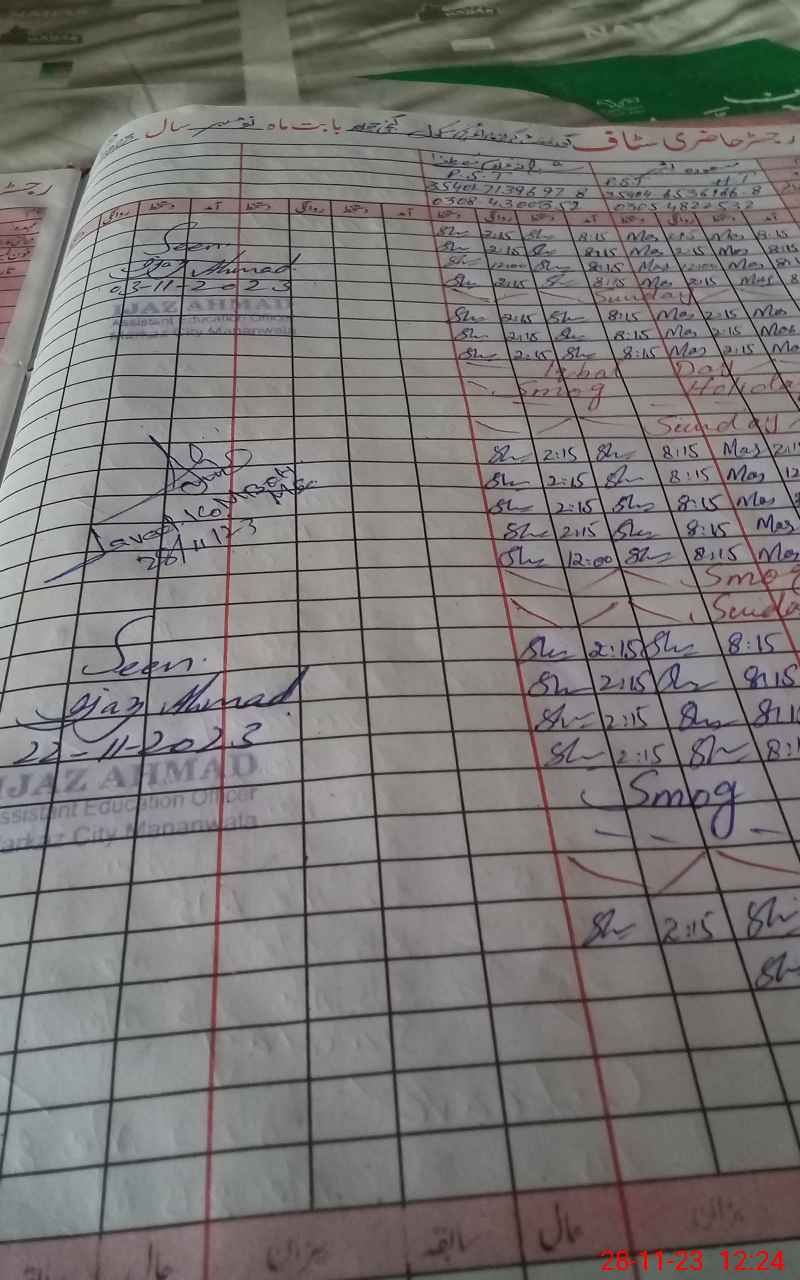 رجسٹر حاضری سٹاف
بابت ماہ نومبر سال
P.S.T P.S.T H.T
0308-4300352 0305 4822532
روانگی دستخط آمد دستخط روانگی دستخط آمد دستخط روانگی دستخط آمد
Seen
Ijaz Ahmad
03-11-2023
IJAZ AHMAD
Assistant Education Officer
Markaz City Mananwala
Sh 2:15 Sh 8:15 Mas 2:15 Mas 8:15
Sh 2:15 Sh 8:15 Mas 2:15 Mas 8:15
Sh 12:00 Sh 8:15 Mas 12:00 Mas 8:1
Sh 2:15 Sh 8:15 Mas 2:15 Mas 8
Sunday
Sh 2:15 Sh 8:15 Mas 2:15 Mas
Sh 2:15 Sh 8:15 Mas 2:15 Mas
Sh 2:15 Sh 8:15 Mas 2:15 Ma
Iqbal Day
Smog Holida
Sunday
Sh 2:15 Sh 8:15 Mas 2:1
Sh 2:15 Sh 8:15 Mas 12
Sh 2:15 Sh 8:15 Mas
Sh 2:15 Sh 8:15 Mas
Sh 12:00 Sh 8:15 Mas
28/11/23
Smog
Sunda
Sh 2:15 Sh 8:15
Sh 2:15 Sh 8:15
Sh 2:15 Sh 8:1
Sh 2:15 Sh 8:1
Seen.
Ijaz Ahmad
22-11-2023
IJAZ AHMAD
Assistant Education Officer
Markaz City Mananwala
Smog
Sh 2:15 Sh
Sh
میزان حال سابقہ میزان حال
28-11-23 12:24